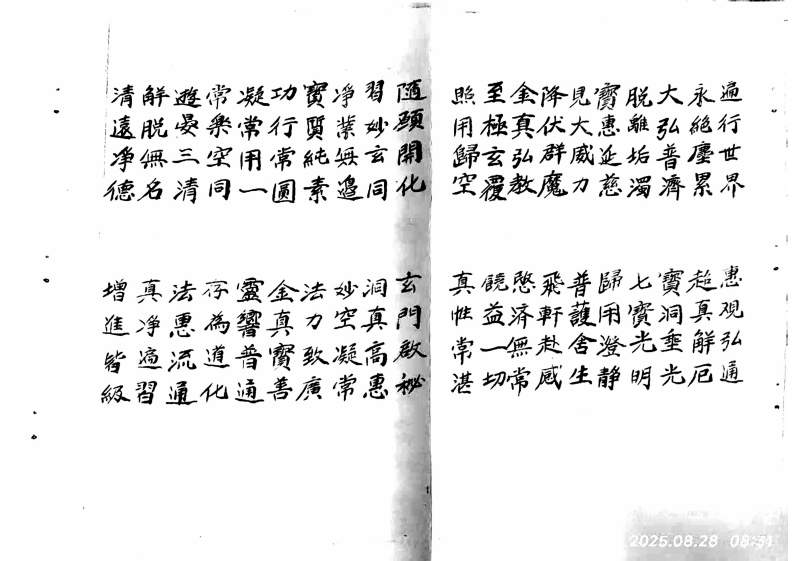 遍行世界 惠观弘通
永絕塵累 超真解厄
大弘普濟 寶洞垂光
脫離垢濁 七寶光明
寶惠延慈 歸用澄静
見大威力 普護舍生
降伏群魔 飛軒赴感
金真弘教 愍濟無常
至極玄覆 饒益一切
照用歸空 真性常湛
随頤開化 玄門啟秘
習妙玄同 洞真高惠
净業無邉 妙空凝常
寶質純素 法力致廣
功行常圓 金真寶善
凝常用一 靈響普通
常樂空同 存為道化
遊晏三清 法惠流通
解脫無名 真净適習
清遠净德 增進皆級
2025.08.28 08:31